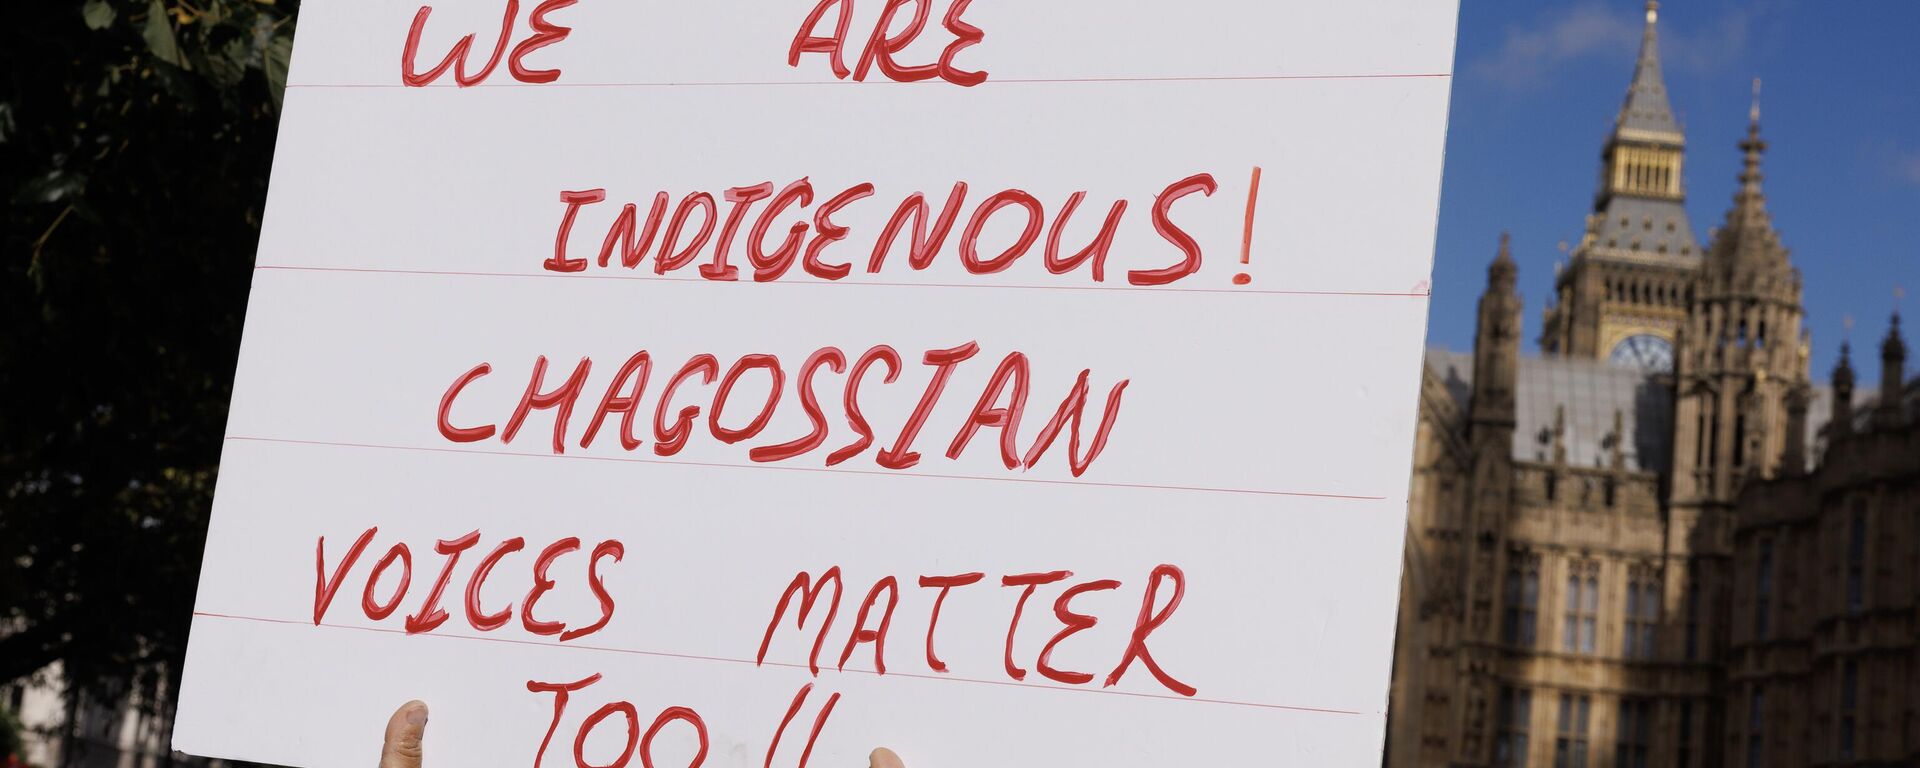 WE ARE
INDIGENOUS!
CHAGOSSIAN
VOICES MATTER
TOO !!